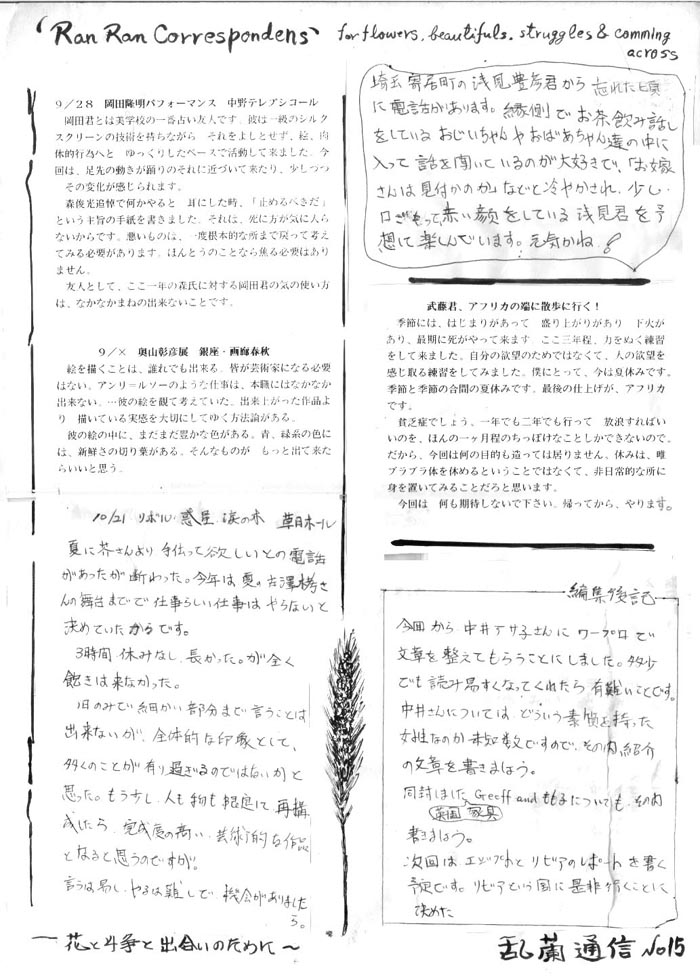 ‘Ran Ran Correspondens’ for flowers, beautifuls. struggles & comming
across
9／28　岡田隆明パフォーマンス　中野テレプシコール
岡田君とは美学校の一番古い友人です。彼は一級のシルク
スクリーンの技術を持ちながら　それをよしとせず、絵、肉
体的行為へと　ゆっくりしたペースで活動して来ました。今
回は、足先の動きが踊りのそれに近づいて来たり、少しつつ
その変化が感じられます。
森俊光追悼で何かやると　耳にした時、「止めるべきだ」
という主旨の手紙を書きました。それは、死に方が気に入ら
ないからです。悪いものは、一度根本的な所まで戻って考え
てみる必要があります。ほんとうのことなら焦る必要はあり
ません。
友人として、ここ一年の森氏に対する岡田君の気の使い方
は、なかなかまねの出来ないことです。
9／×　奥山彰彦展　銀座・画廊春秋
絵を描くことは、誰れでも出来る。皆が芸術家になる必要
はない。アンリ＝ルソーのような仕事は、本職にはなかなか
出来ない。…彼の絵を観て考えていた。出来上がった作品よ
り　描いている実感を大切にしてゆく方法論がある。
彼の絵の中に、まだまだ豊かな色がある。青、緑系の色に
は、新鮮さの切り葉がある。そんなものが　もっと出て来た
らいいと思う。
10/21 リボル 惑星 涙の木　草月ホール
夏に芥さんより 手伝って欲しいとの電話
があったが断わった。今年は 夏の古澤栲さ
んの舞台までで仕事らしい仕事は やらないと
決めていたからです。
3時間 休みなし、長かった。が全く
飽きは来なかった。
1日のみで細かい部分まで言うことは
出来ないが、全体的な印象として、
多くのことが有り過ぎるのではないかと
思った。もう少し、人も物も極度に 再構
成したら、完成度の高い、芸術的な作品
となると思うのですが。
言うは易し、やるは難しで、機会がありました
ら。
埼玉 寄居町の浅見豊彦君から 忘れた頃
に電話があります。縁側でお茶飲み話し
をしている おじいちゃんやおばあちゃん達の中に
入って 話を聞いているのが大好きで、「お嫁
さんは見付かのか」などと冷やかされ、少し
口ごもって赤い顔をしている 浅見君を予
想して楽しんでいます。元気かね
武藤君、アフリカの端に散歩に行く！
季節には、はじまりがあって　盛り上がりがあり　下火が
あり、最期に死がやって来ます。ここ三年程、力をぬく練習
をして来ました。自分の欲望のためではなくて、人の欲望を
感じ取る練習をしてみました。僕にとって、今は夏休みです。
季節と季節の合間の夏休みです。最後の仕上げが、アフリカ
です。
貧乏症でしょう、一年でも二年でも行って　放浪すればい
いのを、ほんの一ヶ月程のちっぽけなことしかできないので。
だから、今回は何の目的も造っては居りません。休みは、唯
ブラブラ体を休めるということではなくて、非日常的な所に
身を置いてみることだろと思います。
今回は　何も期待しないで下さい。帰ってから、やります。
編集後記
今回から 中井アサ子さんに ワープロで
文章を整えてもらうことにしました。多少
でも読み易くなってくれたら 有難いことです。
中井さんについては、どういう素質を持った
女性なのか 未知数ですので、その内 紹介
の文章を書きましょう。
同封しました Geoff and ももるについても、その内
英国 家具
書きましょう。
次回は エジプトと リビアのレポートを書く
予定です。リビアという国に是非行くことに
決めた
― 花と斗争と出合いのために～
乱蘭通信 No15